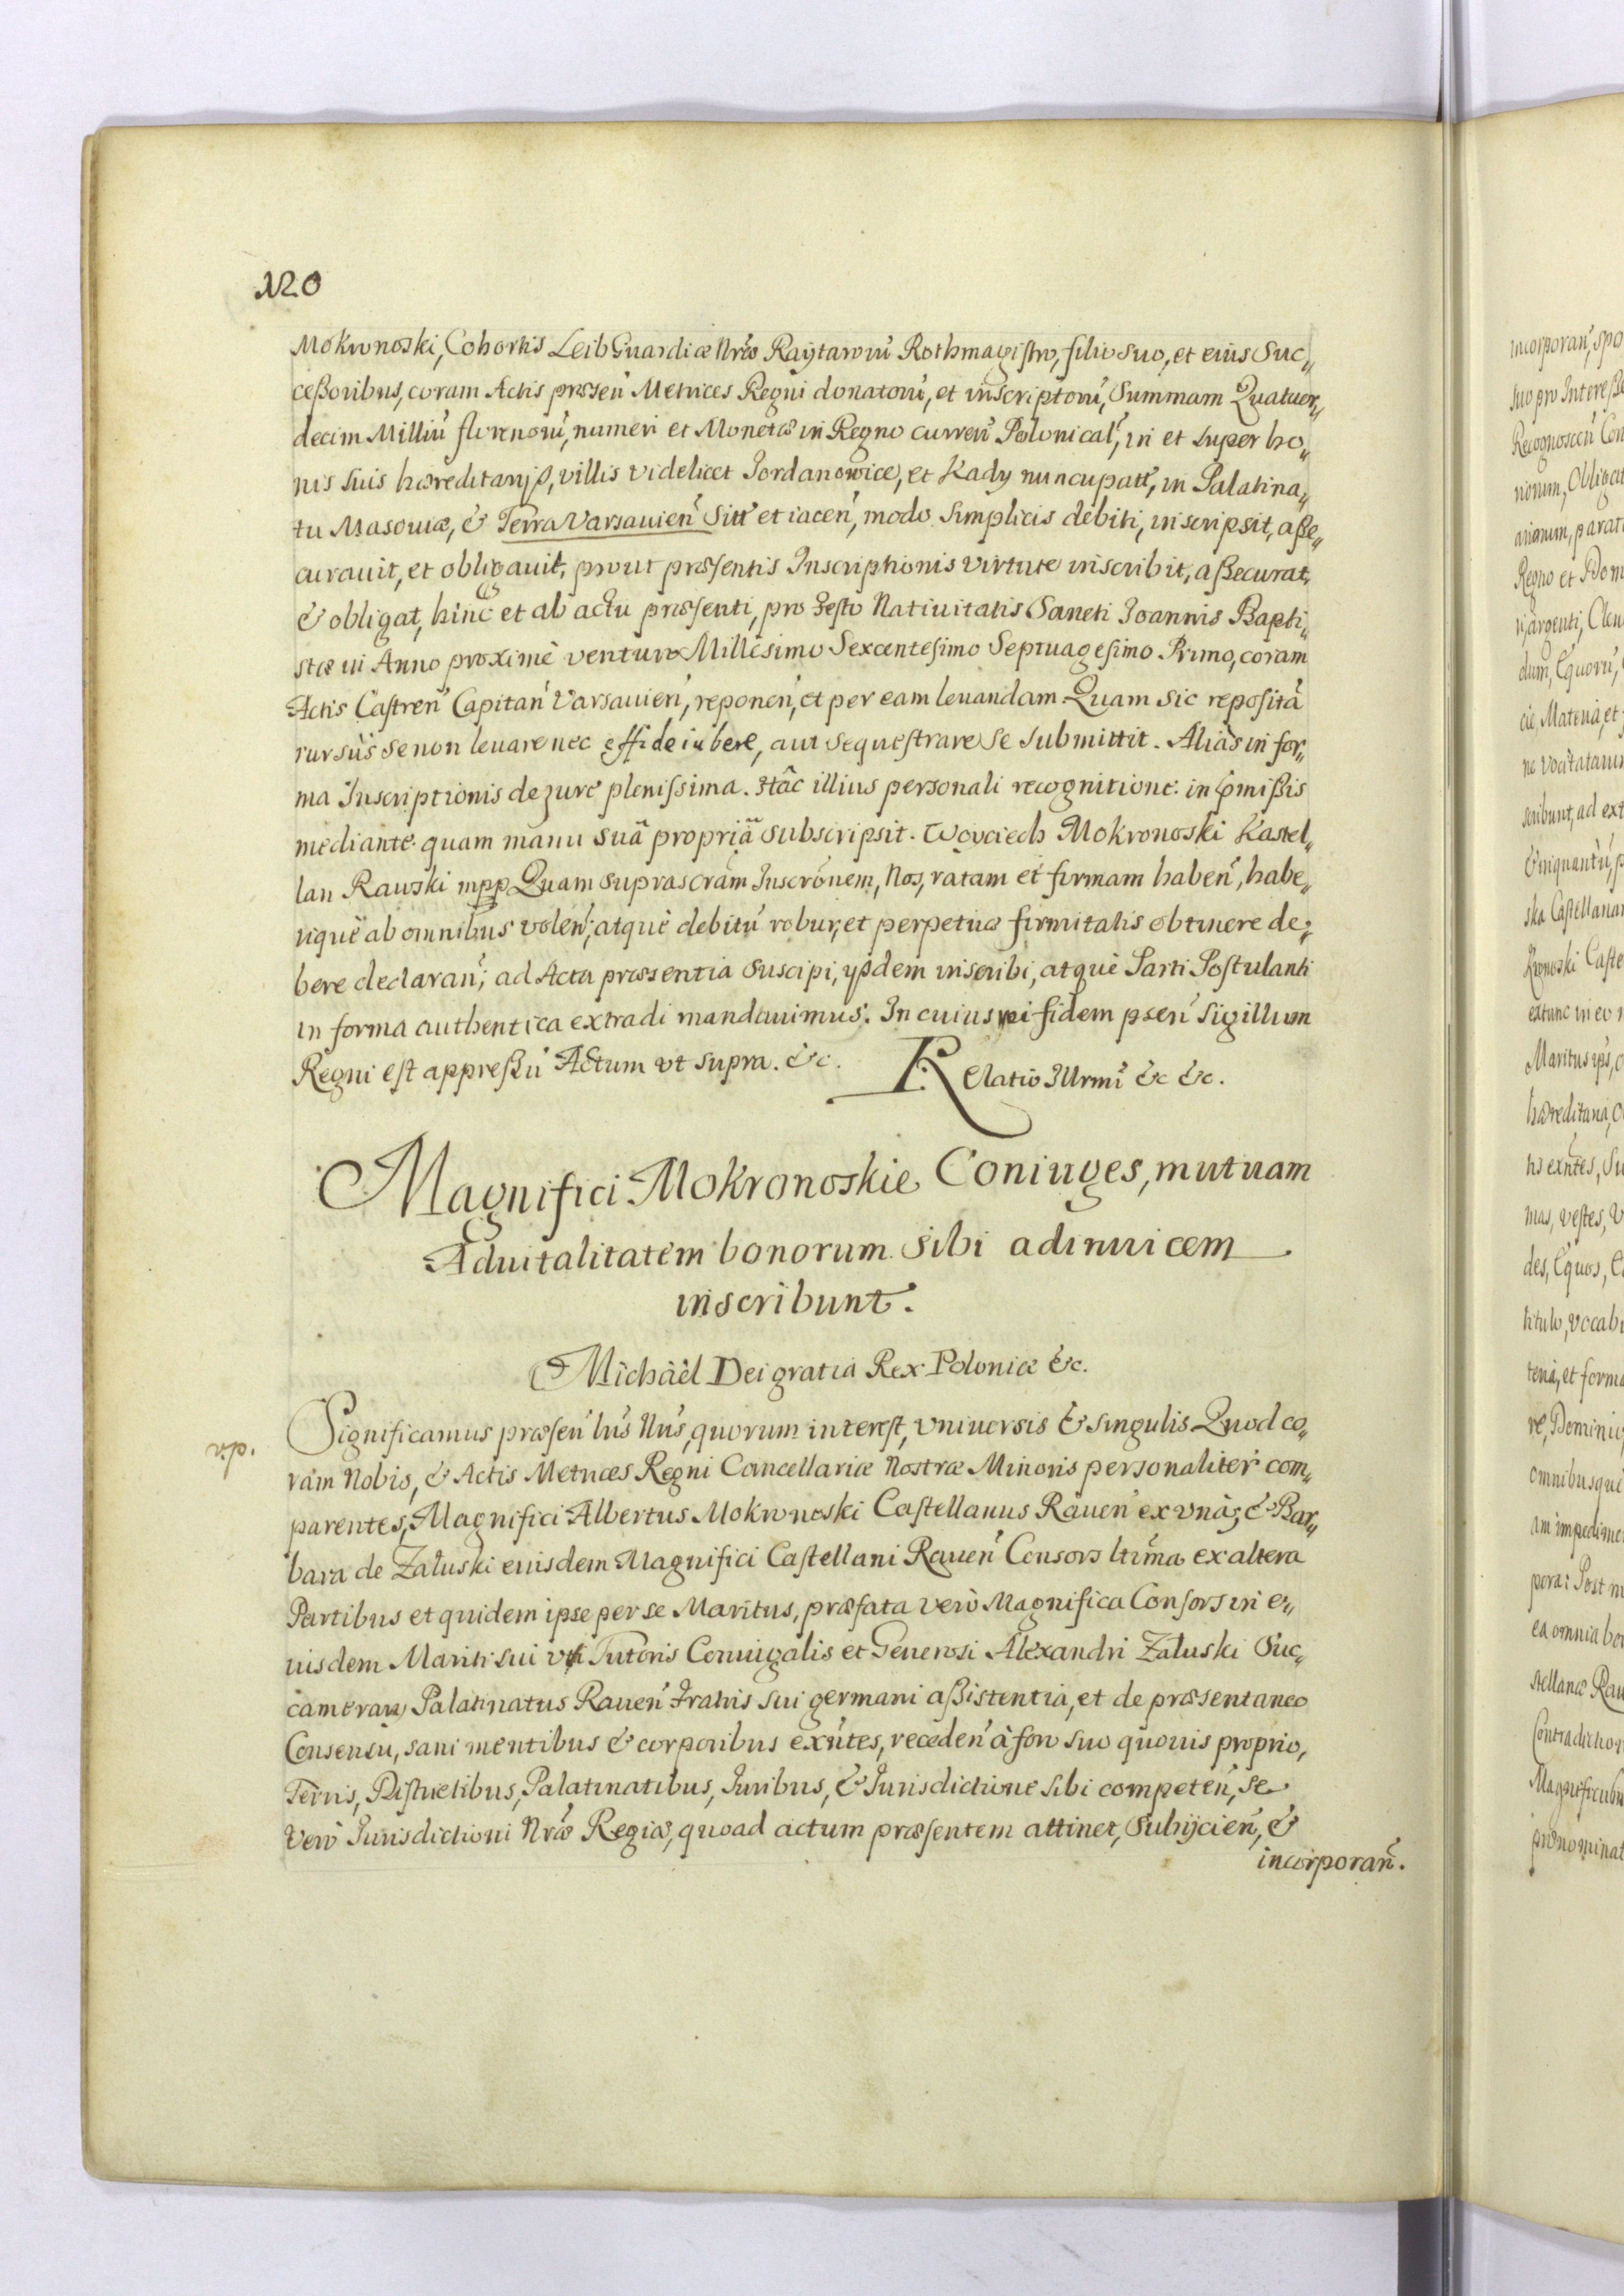 120
Mokronoski, Cohortis Leib Guardiæ Nræ Raÿtarorú Rothmagistro, filio suo, et eius Suc„
ceßoribus, coram Actis præsen̄ Metrices Regni donatorú, et inscriptorú, Summam Quatuor„
decim Milliú florenorú, numeri et Monetæ in Regno curren̄ Polonical̄, in et super bo„
nis suis hæreditarijß, villis videlicet Jordanowice, et Kady nuncupatt̄, in Palatina„
tu Masouiæ, & Terra Varsauien̄ Sitt̄ et iacen̄, modo simplicis debiti, inscripsit, aße„
curauit, et obligauit, prout præsentis Inscriptionis virtute inscribit, aßecurat,
& obligat, hinc et ab actu præsenti, pro Festo Natiuitatis Sancti Joannis Bapti„
stæ in Anno proximè venturo Millesimo Sexcentesimo Septuagesimo Primo, coram
Actis Castren̄ Capitan̄ Varsauien̄, reponen̄, et per eam leuandam. Quam sic repositā
rursùs se non leuare nec effideiubere, aut sequestrare se submittit. Aliàs in for„
ma Inscriptionis de jure plenissima. Hâc illius personali recognitione in p̄mißis
mediante. quam manu suâ propriâ subscripsit. Woyciech Mokronoski Kastel„
lan Rawski mpp Quam suprascr̄am Inscrōnem, Nos, ratam et firmam haben̄, habe„
riquè ab omnibus volen̄; atquè debitú robur, et perpetuæ firmitatis obtinere de„
bere declaran̄; ad Acta præsentia suscipi, ijsdem inscribi, atquè Parti Postulanti
in forma authentica extradi mandauimus. In cuius rei fidem p̄sen̄ Sigillum
Regni est appreßú Actum vt supra. &c. Relatio Illrmi &c &c.
Magnifici Mokronoskie Coniuges, mutuam
Aduitalitatem bonorum sibi adinuicem
inscribunt.
Michäël Dei gratia Rex Poloniæ &c.
v.p.
Significamus præsen̄ lrīs Nrīs, quorum interest, vniuersis & singulis Quod co„
ram Nobis, & Actis Metrices Regni Cancellariæ Nostræ Minoris personaliter com„
parentes, Magnifici Albertus Mokronoski Castellanus Rauen̄ ex vnà; & Bar„
bara de Załuski eiusdem Magnifici Castellani Rauen̄ Consors ltīma ex altera
Partibus et quidem ipse per se Maritus, præfata verò Magnifica Consors in e„
iusdem Mariti sui vti Tutoris Coniugalis et Generosi Alexandri Załuski Suc„
camerarij Palatinatus Rauen̄ Fratris sui germani aßistentia, et de præsentaneo
Consensu, sani mentibus & corporibus exn̄tes, receden̄ à foro suo quouis proprio,
Terris, Districtibus, Palatinatibus, Juribus, & Jurisdictione sibi competen̄, se
verò Jurisdictioni Nræ Regiæ, quoad actum præsentem attinet, Subijcien̄, &
incorporan̄.